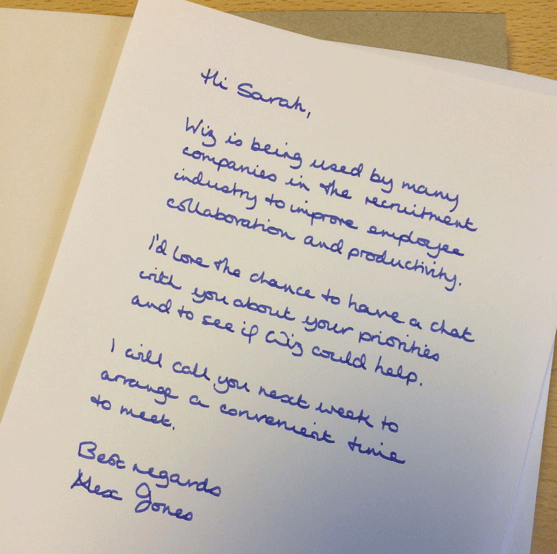 Hi Sarah,
Wiz is being used by many
companies in the recruitment
industry to improve employee
collaboration and productivity.
I'd love the chance to have a chat
with you about your priorities
and to see if Wiz could help.
I will call you next week to
arrange a convenient time
to meet.
Best regards
Alex Jones